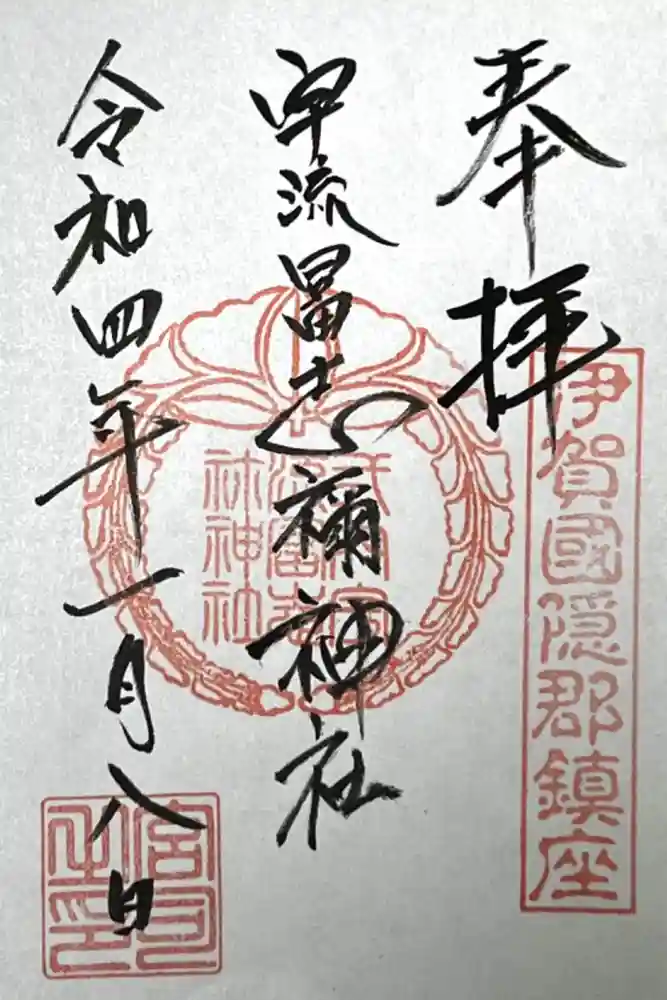 奉拝
伊賀國隠郡鎮座
宇流冨志禰神社
令和四年一月八日
宮司
之印